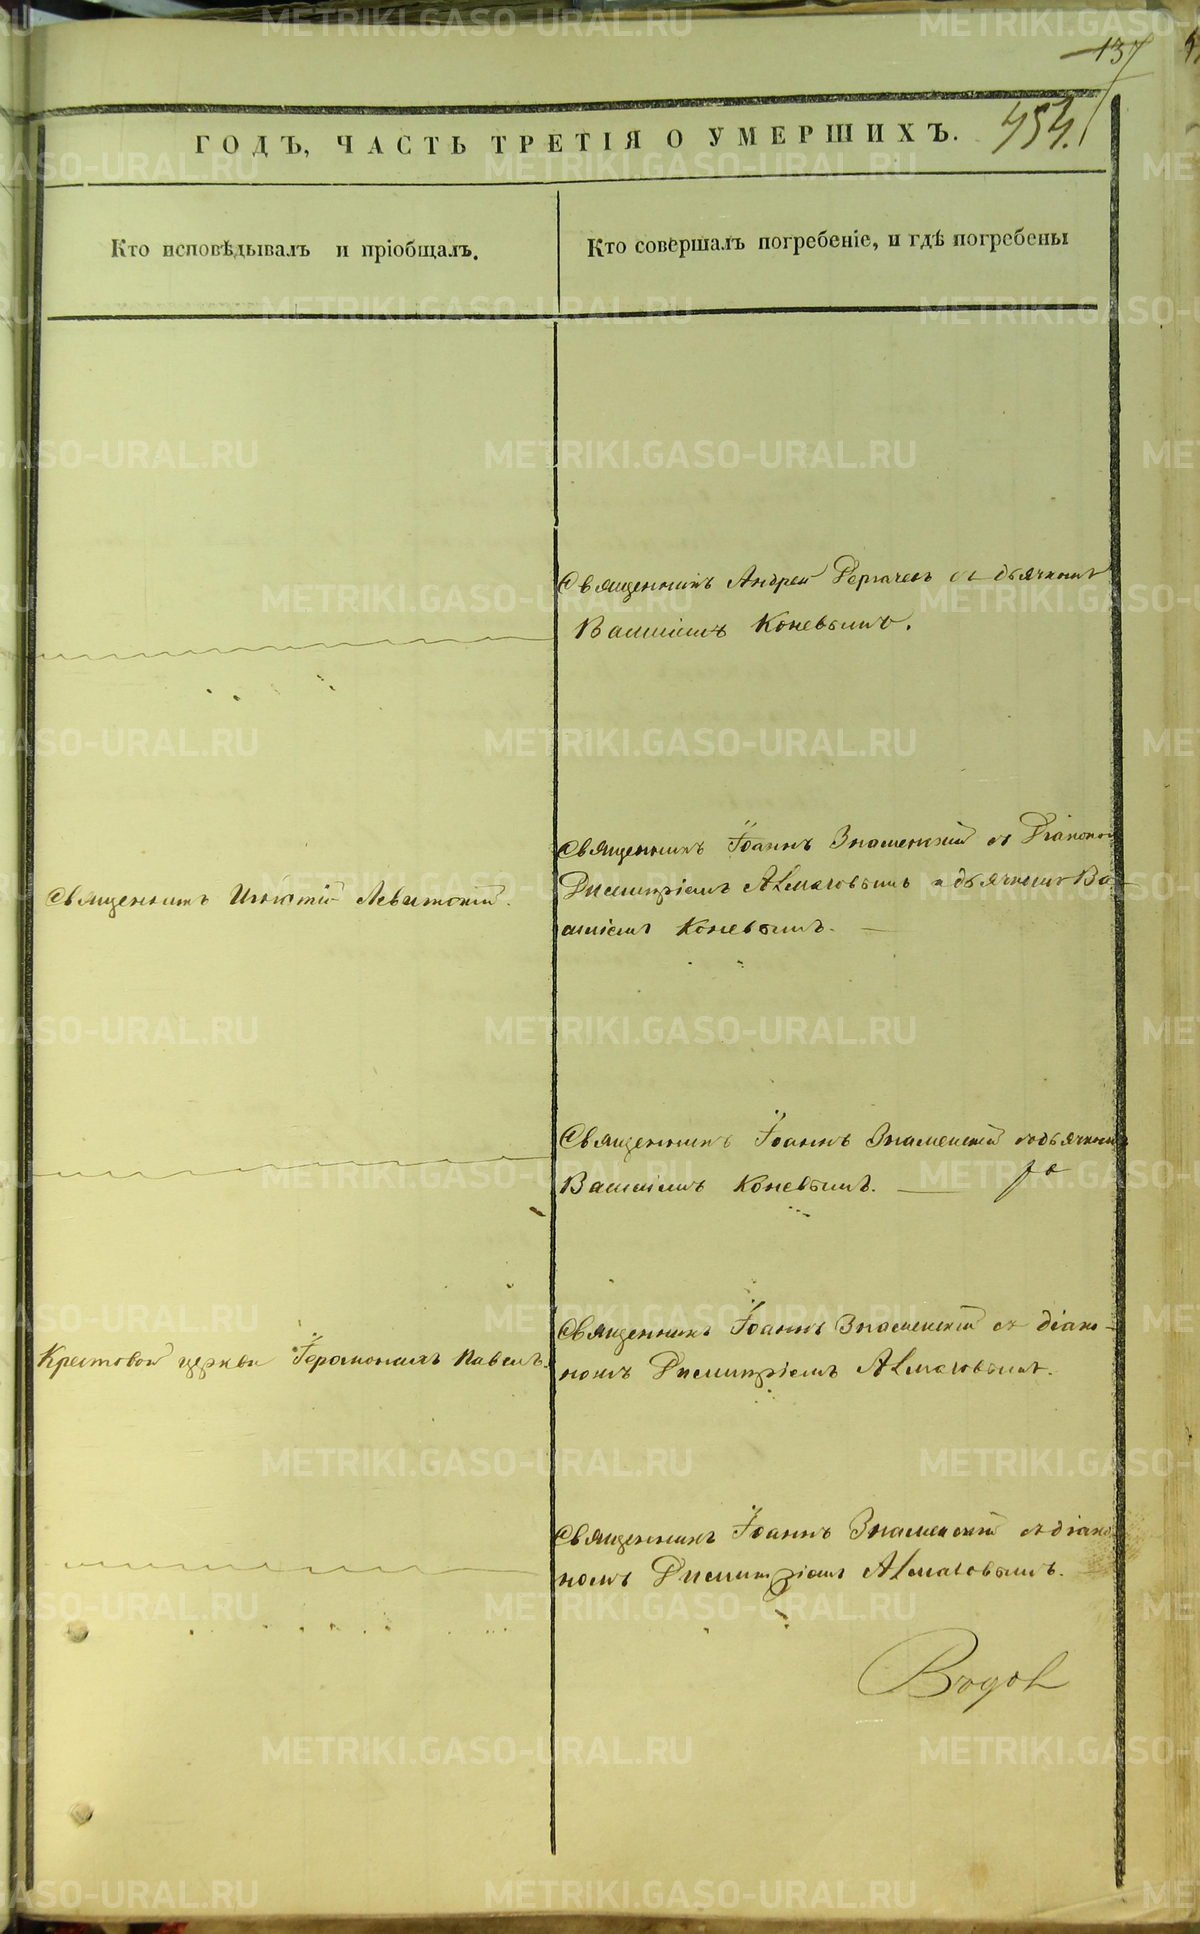 137
454.
ГОДЪ, ЧАСТЬ ТРЕТІЯ О УМЕРШИХЪ.
Кто исповѣдывалъ и пріобщалъ.
Кто совершалъ погребеніе, и гдѣ погребены
Священникъ Андрей съ дьячкомъ
Василіемъ Коневымъ.
Священникъ Игнатій Левитскій.
Священникъ Іоаннъ Знаменскій съ Діакономъ
Димитріемъ и дьячкомъ Ва-
силіемъ Коневымъ.
Священникъ Іоаннъ Знаменскій съ дьячкомъ
Василіемъ Коневымъ.
Крестовой церкви Іеромонахъ Павелъ.
Священникъ Іоаннъ Знаменскій съ діако-
номъ Димитріемъ
Священникъ Іоаннъ Знаменскій съ діако-
номъ Димитріемъ
METRIKI.GASO-URAL.RU